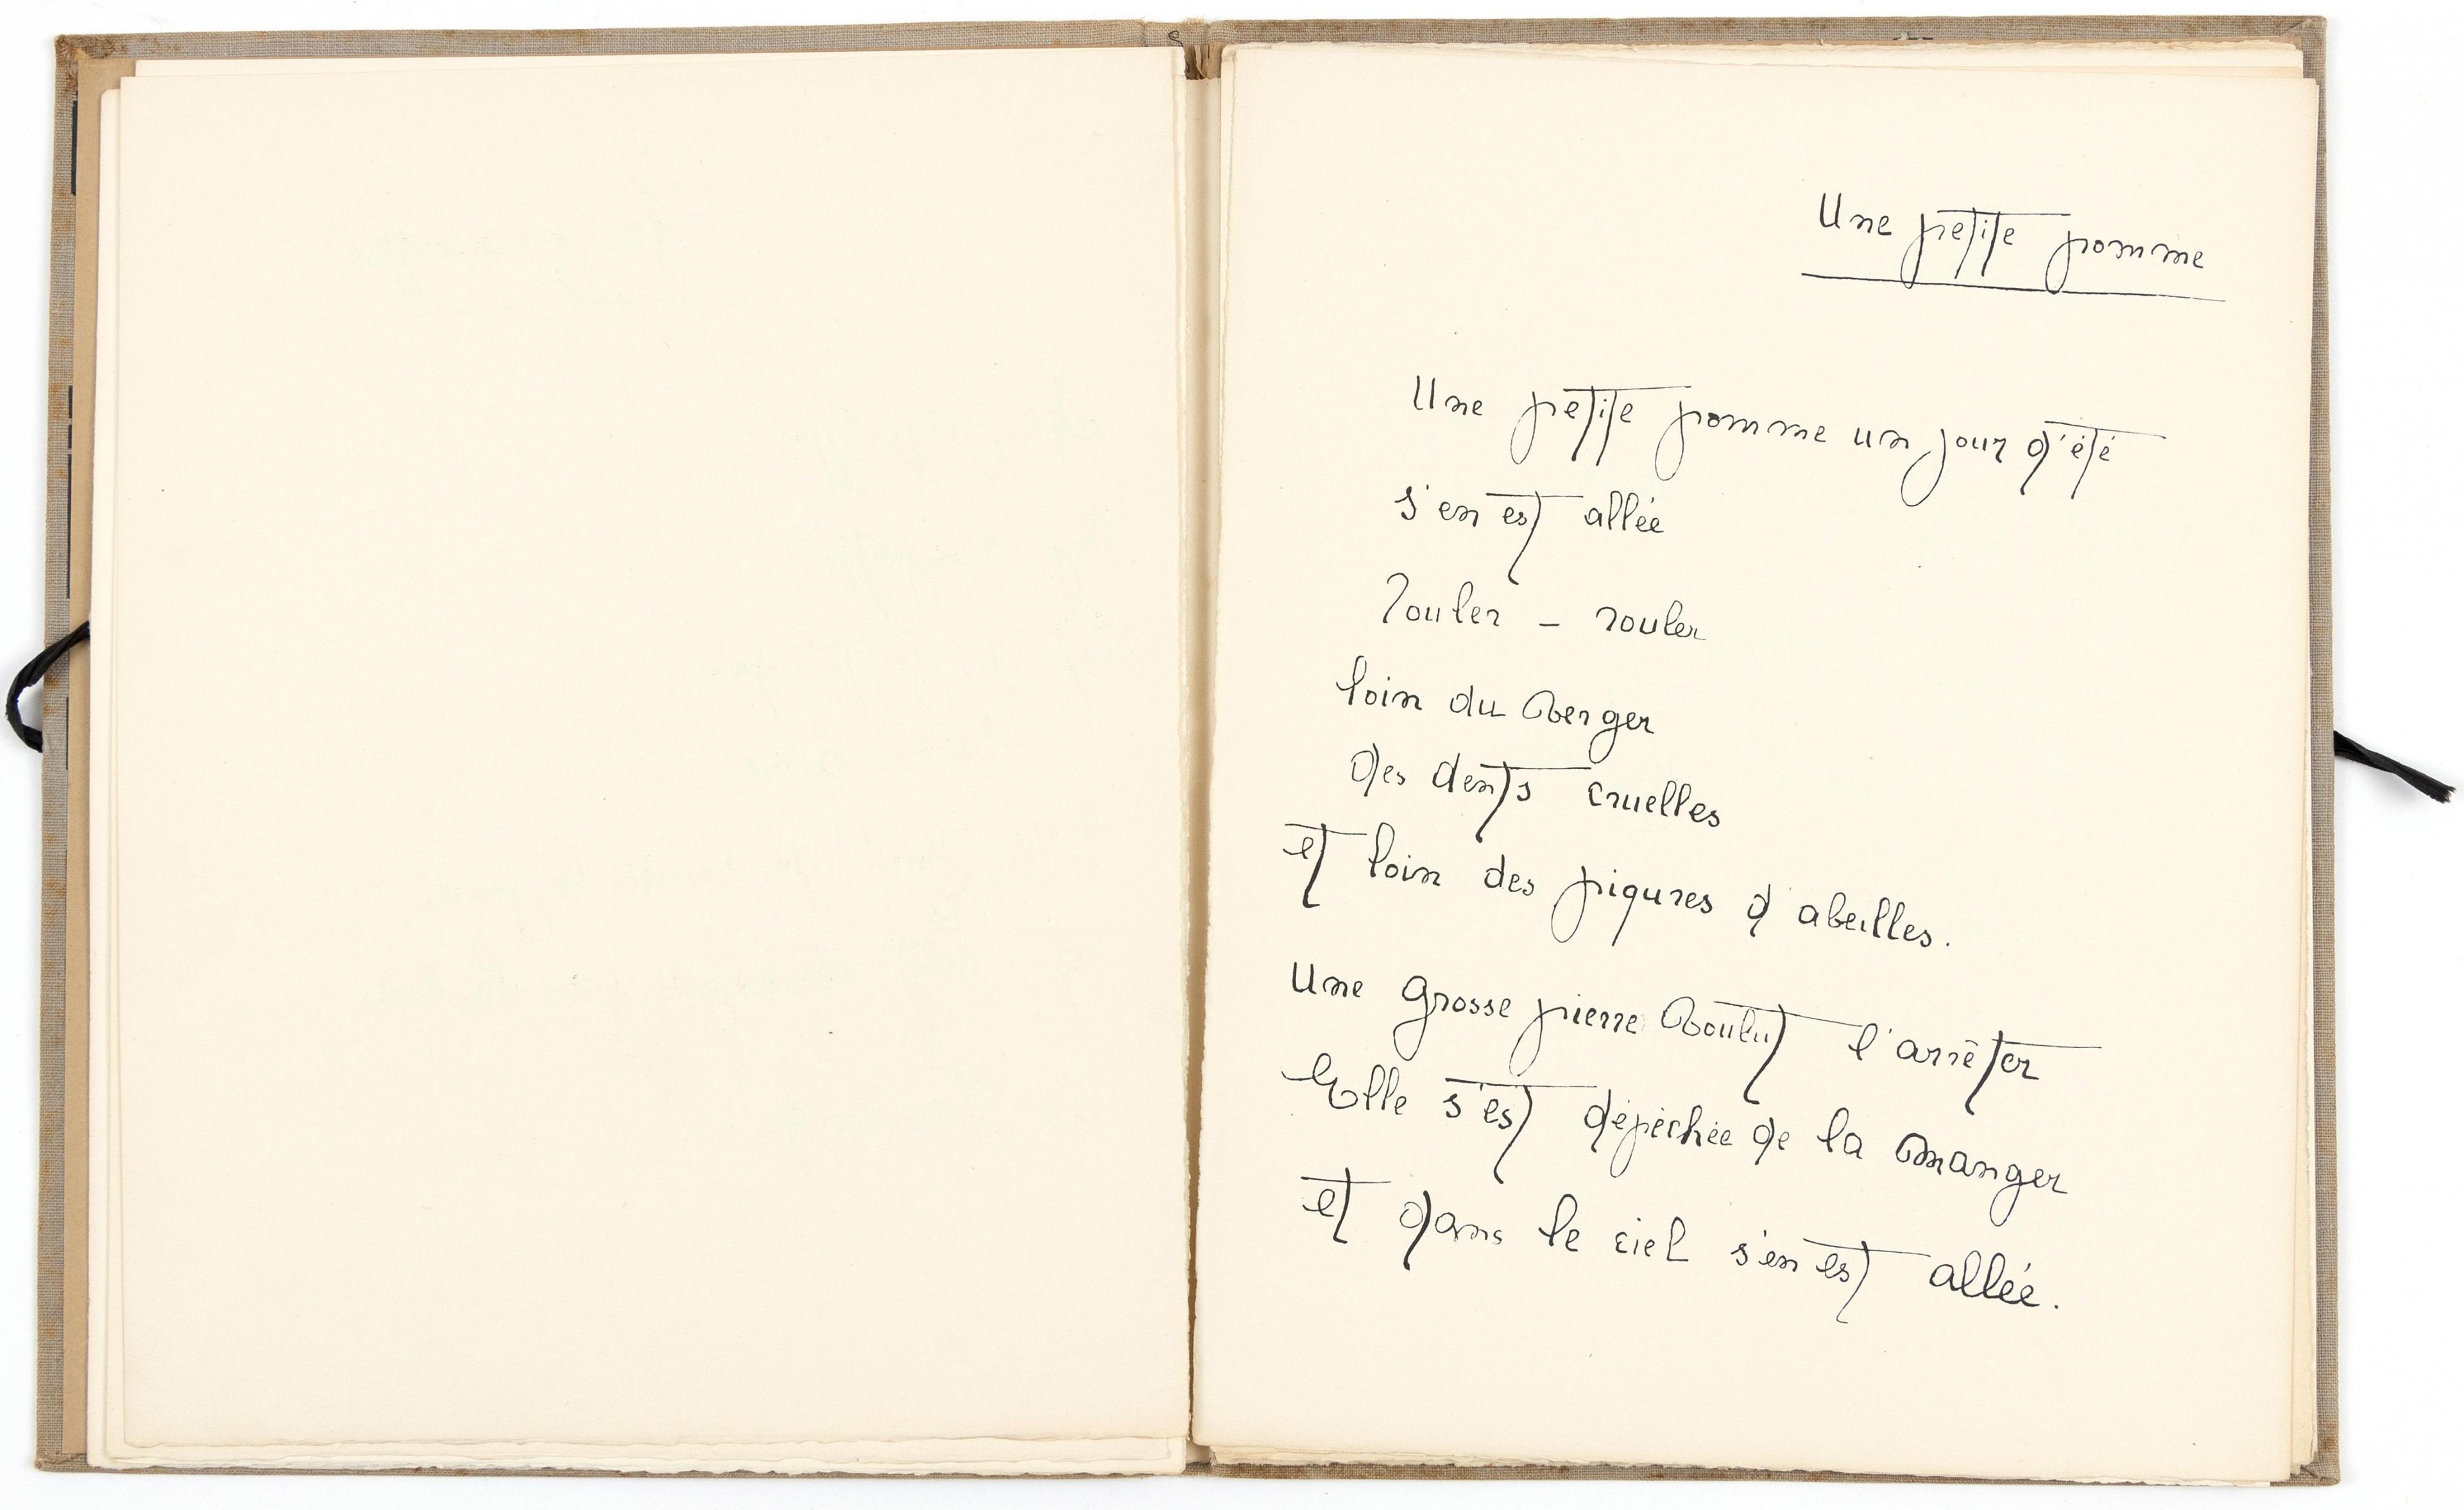 Une petite pomme
Une petite pomme un jour d'été
s'en est allée
rouler - rouler
loin du verger
des dents cruelles
et loin des piqures d'abeilles.
Une grosse pierre voulut l'arrêter
Elle s'est dépéchée de la manger
et dans le ciel s'en est allée.